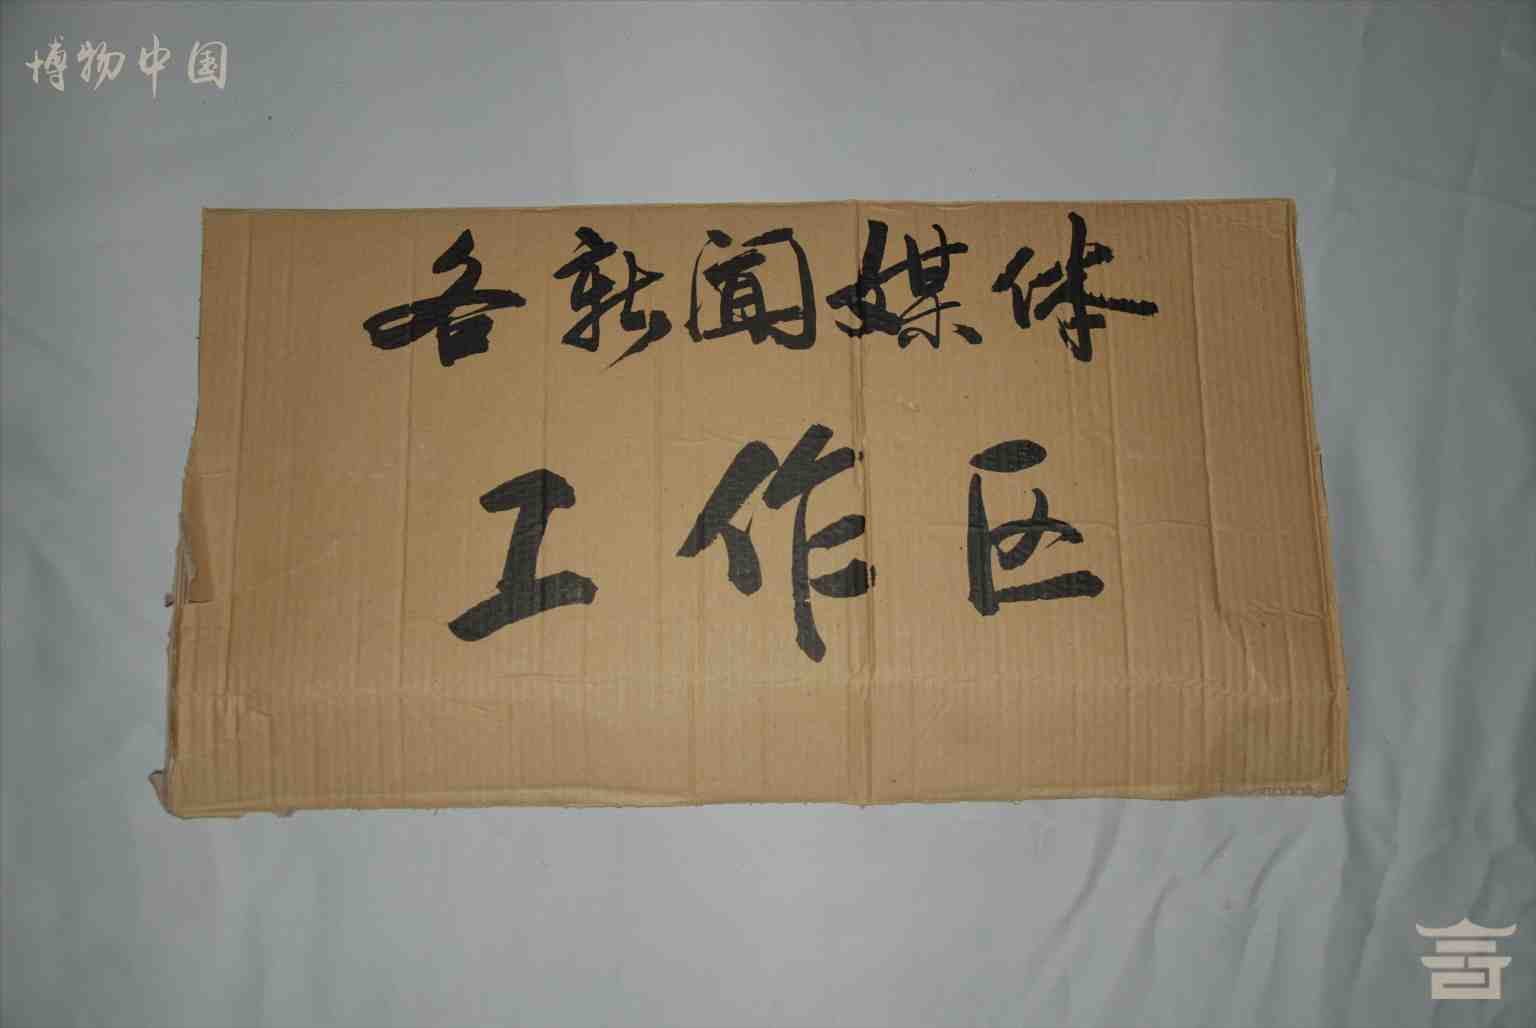 博物中国
各新闻媒体
工作区